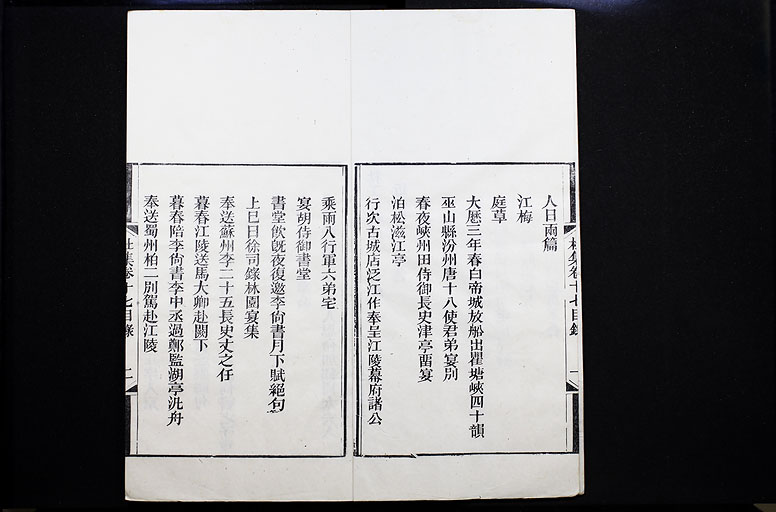 杜集卷十七目錄
一
人日兩篇
江梅
庭草
大曆三年春白帝城放船出瞿塘峽四十韻
巫山縣汾州唐十八使君弟宴別
春夜峽州田侍御長史津亭畱宴
泊松滋江亭
行次古城店泛江作奉呈江陵幕府諸公
乘雨入行軍六弟宅
宴胡侍御書堂
書堂飲旣夜復邀李尙書月下賦絕句
上巳日徐司錄林園宴集
奉送蘇州李二十五長史丈之任
暮春江陵送馬大卿赴闕下
暮春陪李尙書李中丞過鄭監湖亭汎舟
奉送蜀州柏二別駕赴江陵
杜集卷十七目錄
二